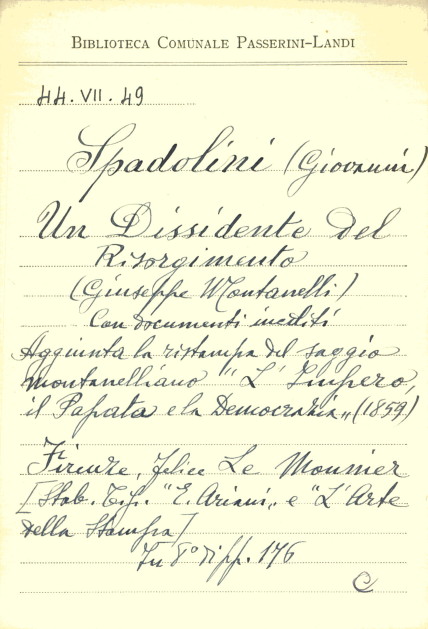 BIBLIOTECA COMUNALE PASSERINI-LANDI
44. VII. 49
Spadolini (Giovanni)
Un Dissidente del
Risorgimento
(Giuseppe Montanelli)
Con documenti inediti
Aggiunta la ristampa del saggio
montanelliano "L'Impero,
il Papata e la Democrazia„ (1859)
Firenze, Felice Le Monnier
[Stab. Tip. "E. Ariani„ e "L'Arte
della Stampa]
In 8° di pp. 176
C